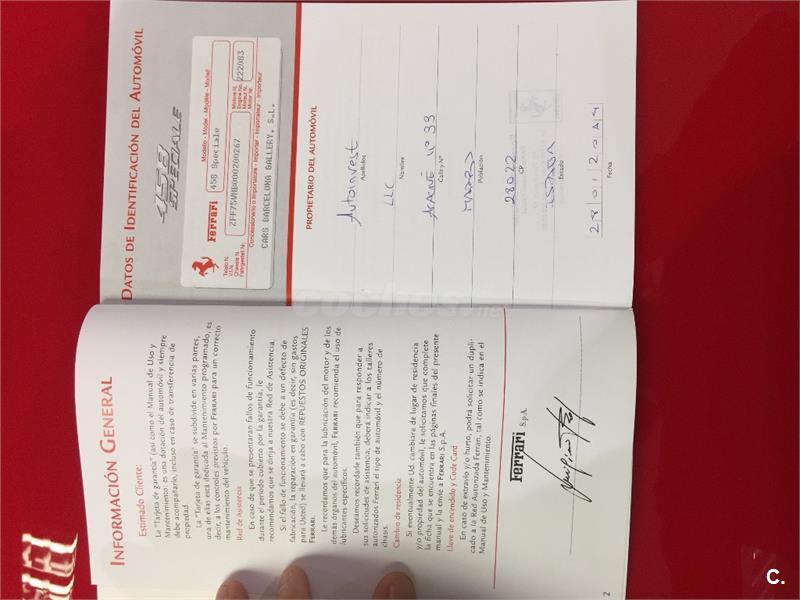 INFORMACIÓN GENERAL
Estimado Cliente:
La "Tarjeta de garantía" (así como el Manual de Uso y
Mantenimiento) es una dotación del automóvil y siempre
debe acompañarlo, incluso en caso de transferencia de
propiedad.
La "Tarjeta de garantía" se subdivide en varias partes,
una de ellas está dedicada al Mantenimiento programado, es
decir, a los controles previstos por FERRARI para un correcto
mantenimiento del vehículo.
Red de Asistencia
En caso de que se presentaran fallos de funcionamiento
durante el período cubierto por la garantía, le
recomendamos que se dirija a nuestra Red de Asistencia.
Si el fallo de funcionamiento se debe a un defecto de
fabricación, la reparación en garantía (es decir, sin gastos
para Usted) se llevará a cabo con REPUESTOS ORIGINALES
FERRARI.
Le recordamos que para la lubricación del motor y de los
demás órganos del automóvil, FERRARI recomienda el uso de
lubricantes específicos.
Deseamos recordarle también que para responder a
sus solicitudes de asistencia, deberá indicar a los talleres
autorizados Ferrari el tipo de automóvil y el número de
chasis.
Cambio de residencia
Si eventualmente Ud. cambiara de lugar de residencia
y/o propiedad del automóvil, le solicitamos que complete
la ficha que se encuentra en las páginas finales del presente
manual y la envíe a FERRARI S.p.A.
Llave de encendido y Code Card
En caso de extravío y/o hurto, podrá solicitar un dupli-
cado a la Red Autorizada Ferrari, tal como se indica en el
Manual de Uso y Mantenimiento.
Ferrari S.p.A.
2
DATOS DE IDENTIFICACIÓN DEL AUTOMÓVIL
458
SPECIALE
Ferrari
Modello - Model - Modèle - Modell
458 Speciale
Telaio N.
V.I.N.
Chassis N.
Fahrgestel Nr.
ZFF75VHB000200267
Motore N.
Engine No.
Moteur N.
Motor Nr.
222083
Concessionario o Importatore - Importer - Importateur - Importeur
CARS BARCELONA GALLERY, S.L.
PROPIETARIO DEL AUTOMÓVIL
Autoinvest
Apellidos
LLC
Nombre
Nº 33
Calle y Nº
MADRID
Población
28022
CP
ESPAÑA
Estado
28012014
Fecha
coches.net
C.